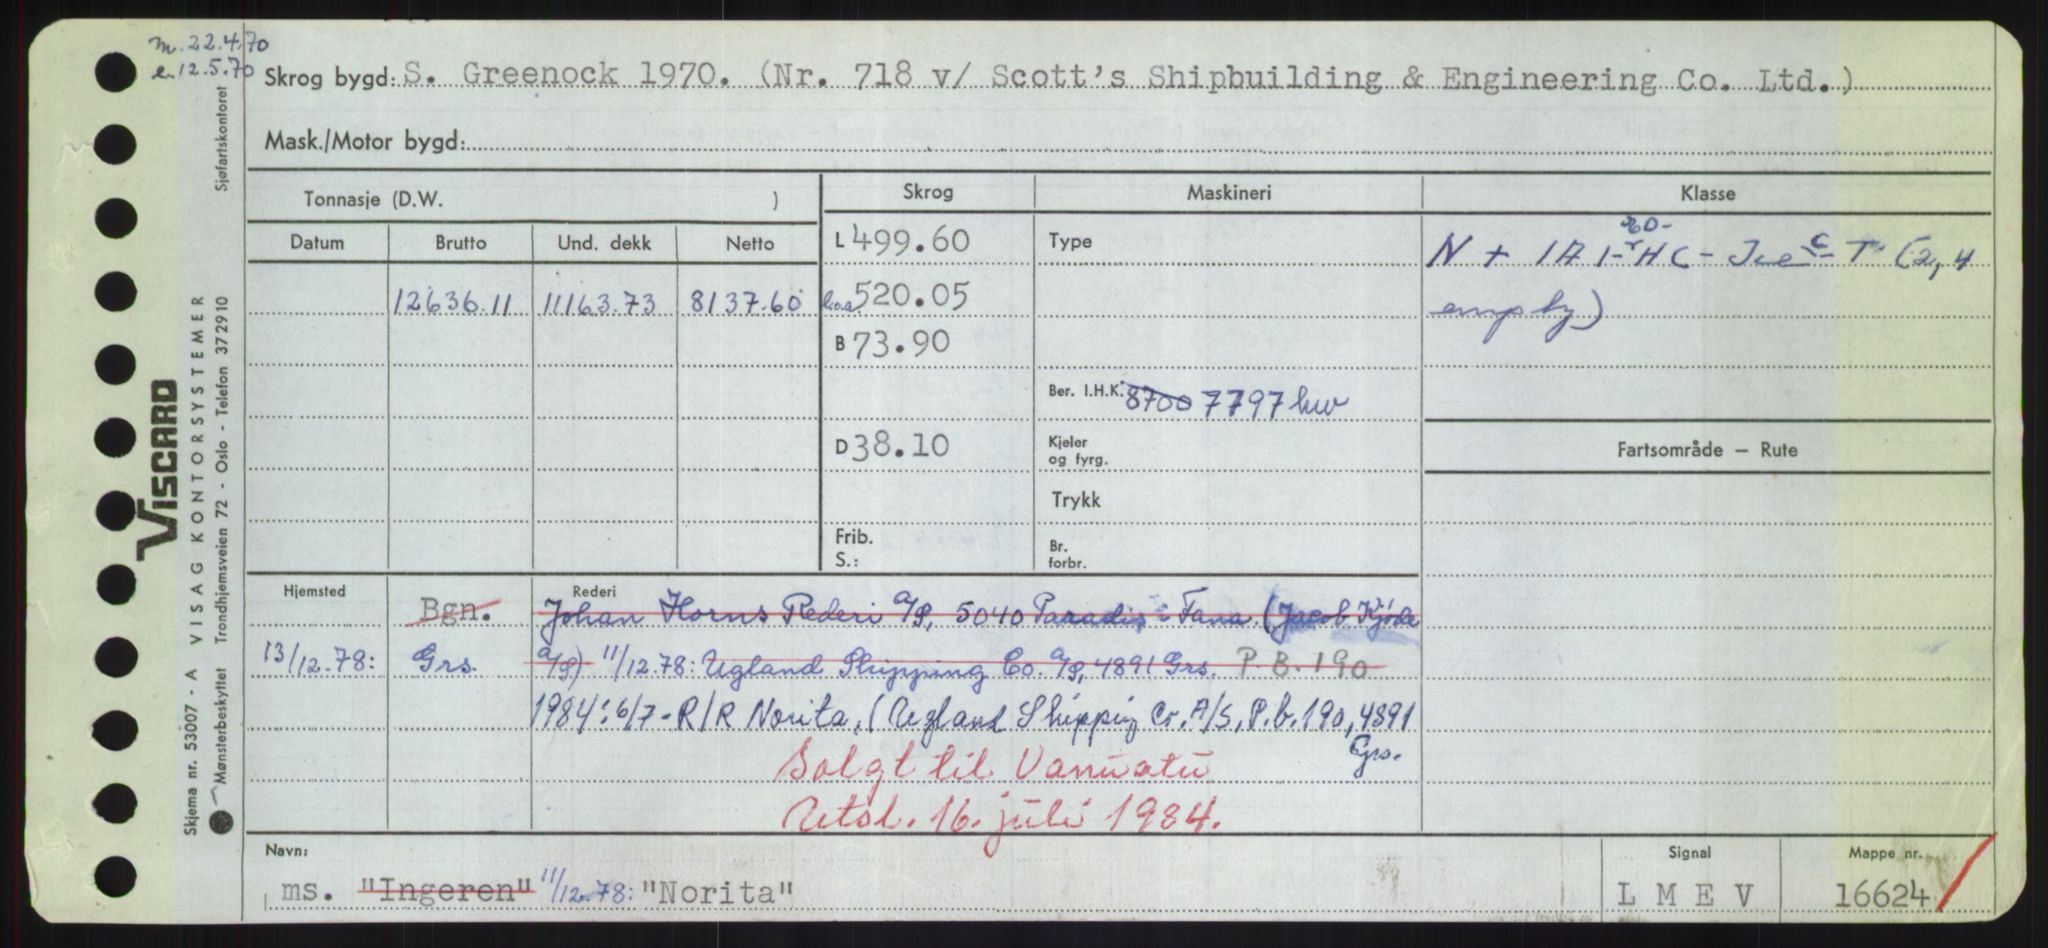 m. 22.4.70
e. 12.5.70
Skrog bygd: S. Greenock 1970. (Nr. 718 v/ Scott's Shipbuilding & Engineering Co. Ltd.)
Mask./Motor bygd:
Tonnasje (D.W. )
Skrog
Maskineri
Klasse
Datum Brutto Und. dekk Netto
12636.11 11163.73 8137.60
L 499.60
l.o.a. 520.05
B 73.90
D 38.10
Frib.
S.:
Type
Ber. I.H.K. 8700 7797 hw
Kjeler
og fyrg.
Trykk
Br.
forbr.
N + 1A1- HC - Ice C - T (2, 4
empty)
Fartsområde – Rute
Hjemsted
Rederi
Bgn. Johan Horns Rederi A/S, 5040 Paradis i Fana (Jacob Kjøde
13/12.78: Grs. A/S) 11/12.78: Ugland Shipping Co. A/S, 4891 Grs. P.B. 190
1984: 6/7 - R/R Norita, (Ugland Shipping Co. A/S, P.b. 190, 4891
Grs.
Solgt til Vanuatu
Utsl. 16. juli 1984.
Navn:
ms. "Ingeren" 11/12.78: "Norita"
Signal
L M E V
Mappe nr.
16624
VISCARD
Skjema nr. 53007 - A VISAG KONTORSYSTEMER Sjøfartskontoret
Mønsterbeskyttet Trondhjemsveien 72 - Oslo - Telefon 372910